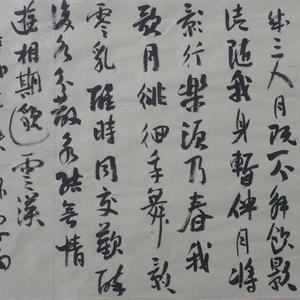 成三人月既不解飲影
徒隨我身暫伴月將
影行樂須及春我
歌月徘徊我舞影
零亂醒時同交歡醉
後各分散永結無情
遊相期邈雲漢